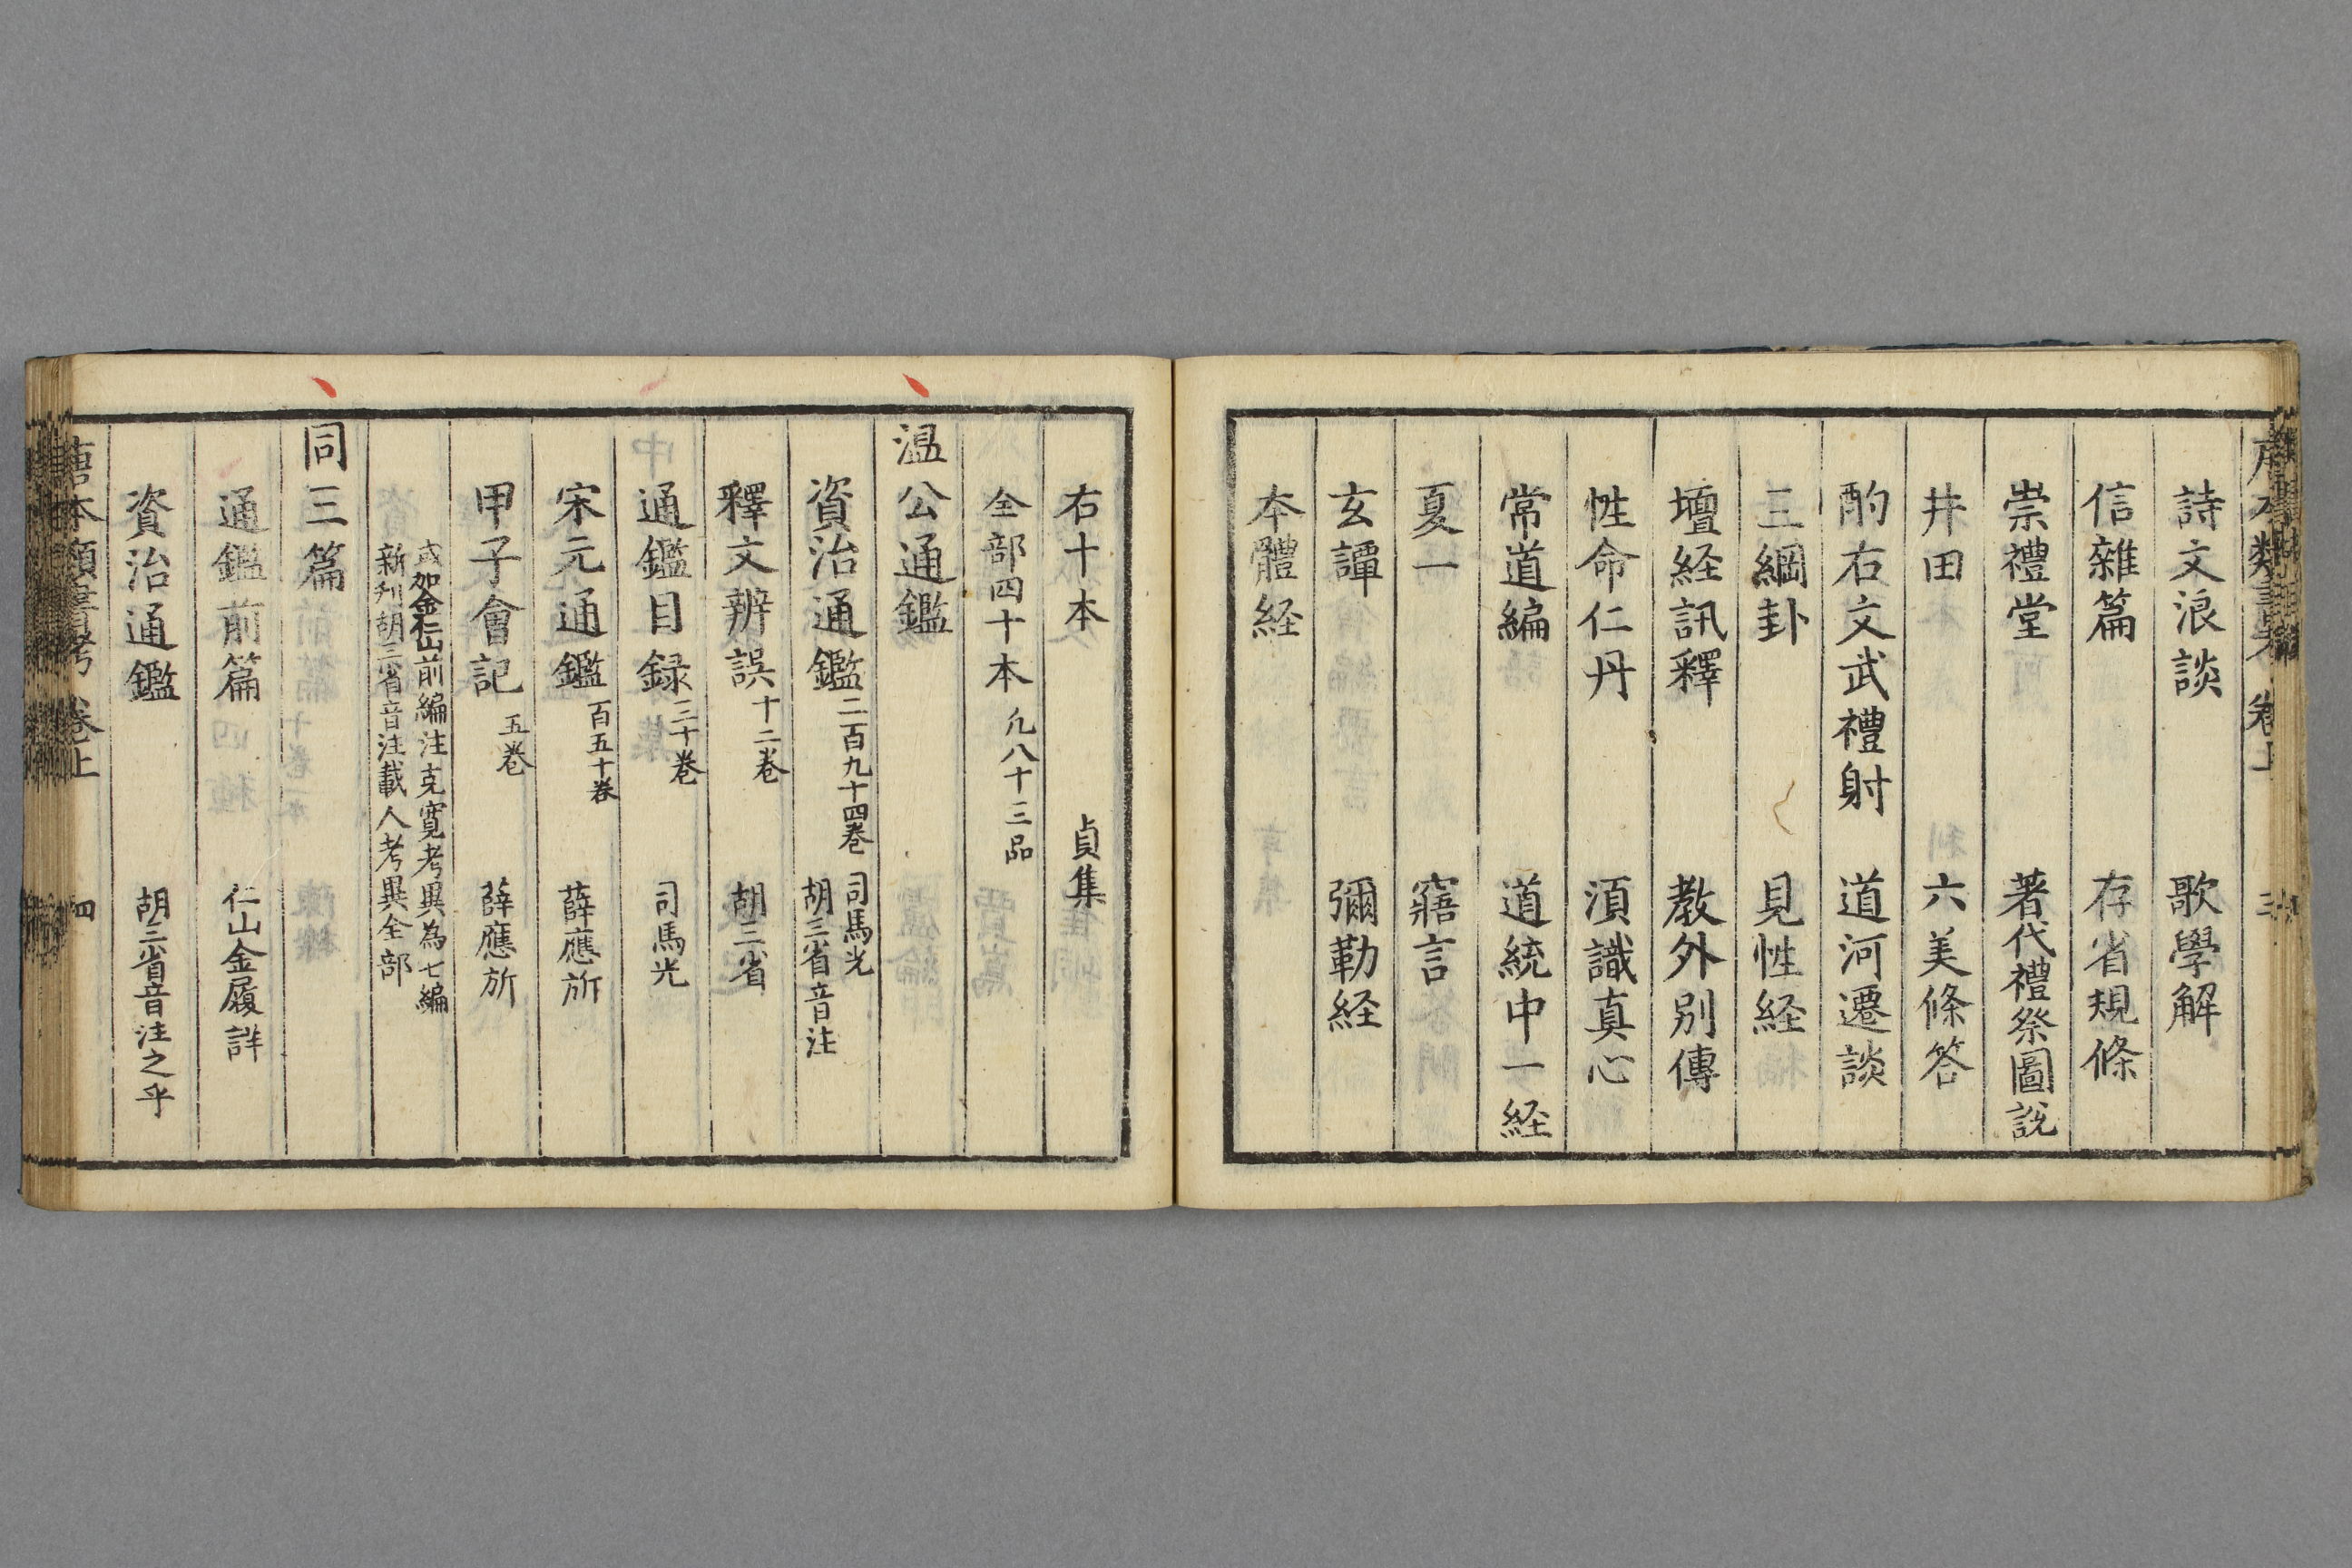 詩文浪談 歌學解
信雜篇 存省規條
崇禮堂 著代禮祭圖説
井田 六美條答
酌右文武禮射 道河遷談
三綱卦 見性経
壇経訊釋 教外別傳
性命仁丹 湏識真心
常道編 道統中一経
夏一 寤言
玄譚 彌勒経
本體経
右十本 貞集
全部四十本 凢八十三品
温公通鑑
資治通鑑 二百九十四巻 司馬光 胡三省音注
釋文辨誤 十二巻 胡三省
通鑑目録 三十巻 司馬光
宋元通鑑 百五十巻 薛應旂
甲子會記 五巻 薛應旂
或加金仁山前編注克寛考異為七編
新刊胡三省音注載人考異全部
同三篇
通鑑前篇 仁山金履詳
資治通鑑 胡三省音注之乎
唐本類書考 卷上 四